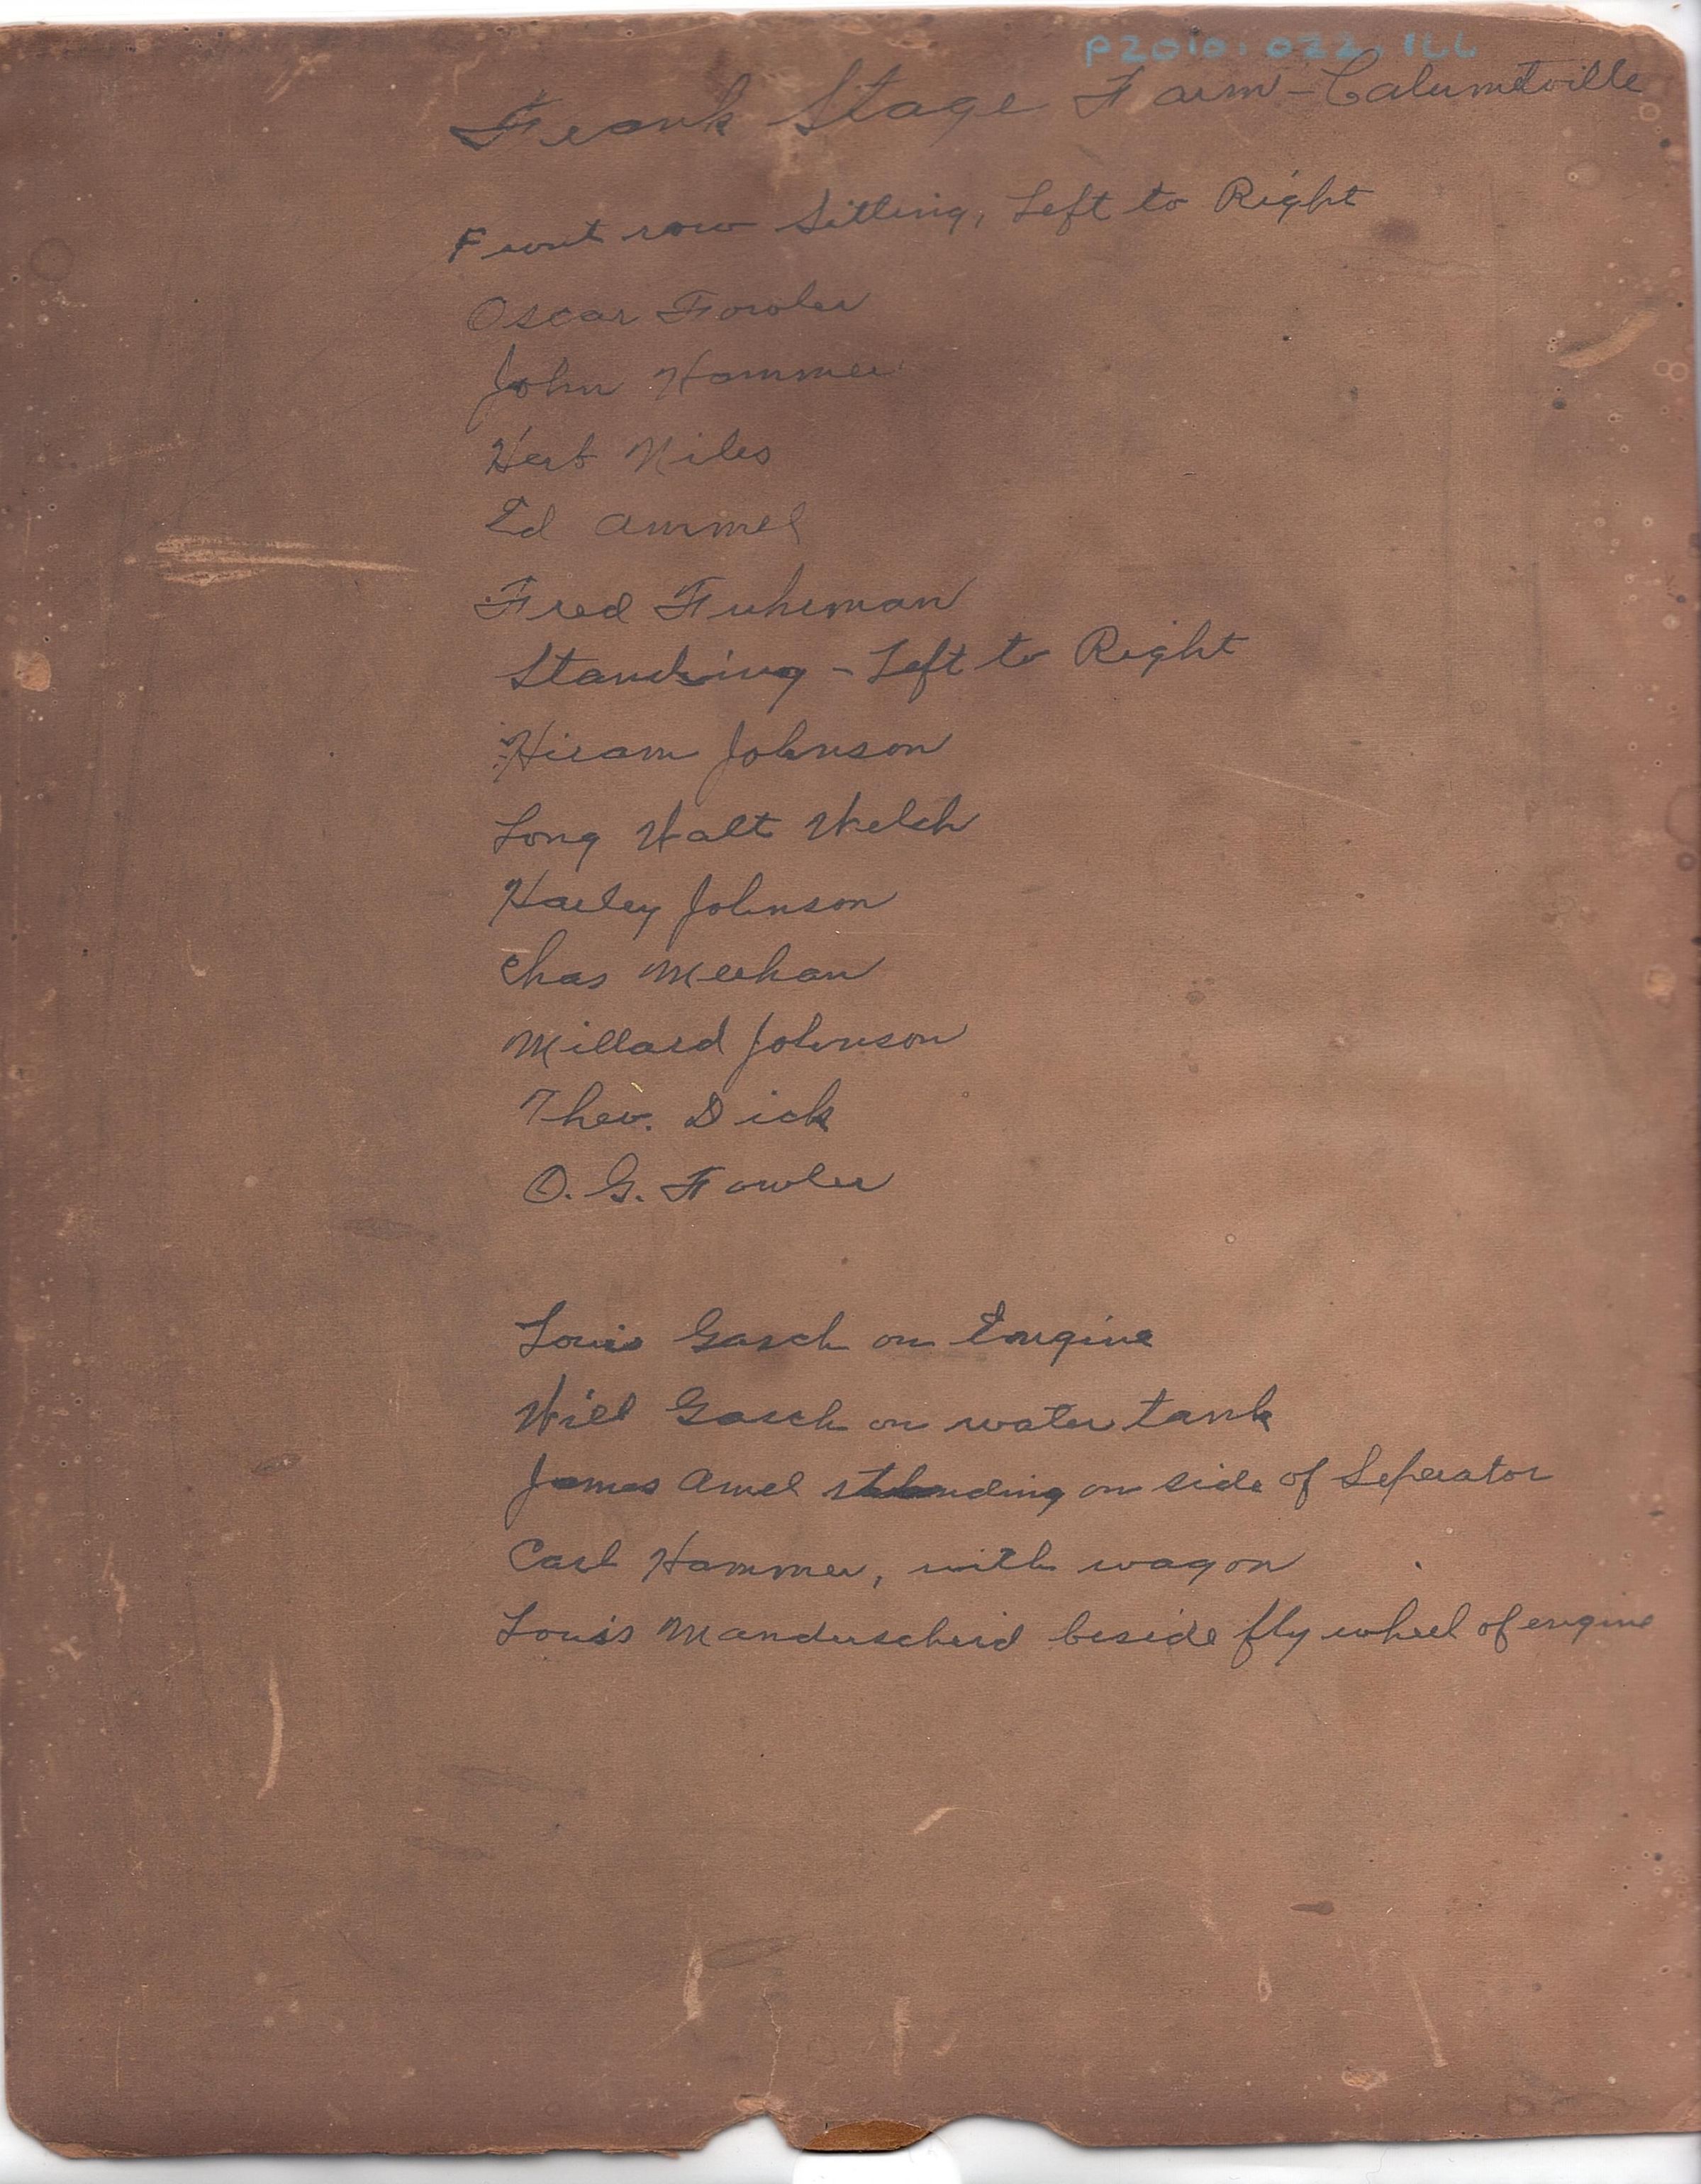 P2010.022.166
Frank Stage Farm - Calumetville
Front row Sitting, Left to Right
Oscar Fowler
John Hammer
Herb Niles
Ed Ammel
Fred Fuhrman
Standing - Left to Right
Hiram Johnson
Long Walt Welch
Harley Johnson
Chas Meehan
Millard Johnson
Theo. Dick
O. G. Fowler
Louis Gasch on Engine
Will Gasch on water tank
James Amel standing on side of Seperator
Carl Hammer, with wagon
Louis Manderscheid beside fly wheel of engine